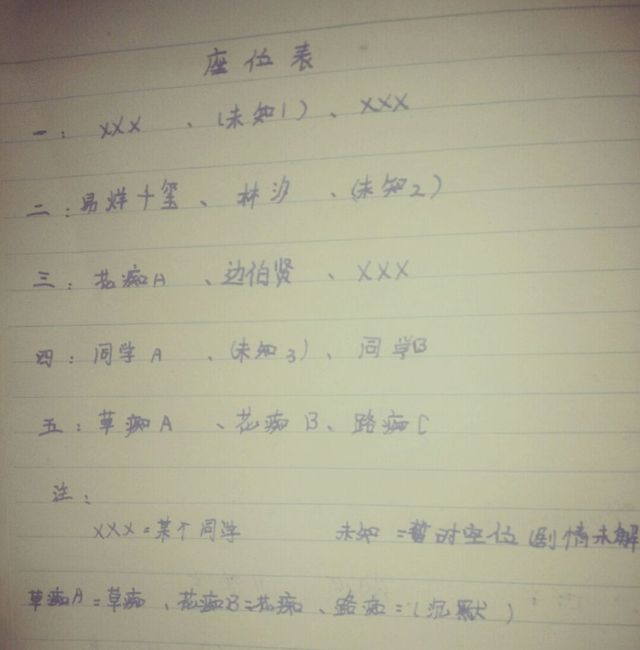 座位表
一：XXX、（未知1）、XXX
二：易烊千玺、林汐、（未知2）
三：花痴A、边伯贤、XXX
四：同学A、（未知3）、同学B
五：草痴A、花痴B、路痴C
注：
XXX=某个同学 未知=暂时空位（剧情未解
草痴A=草痴、花痴B=花痴、路痴=（沉默）